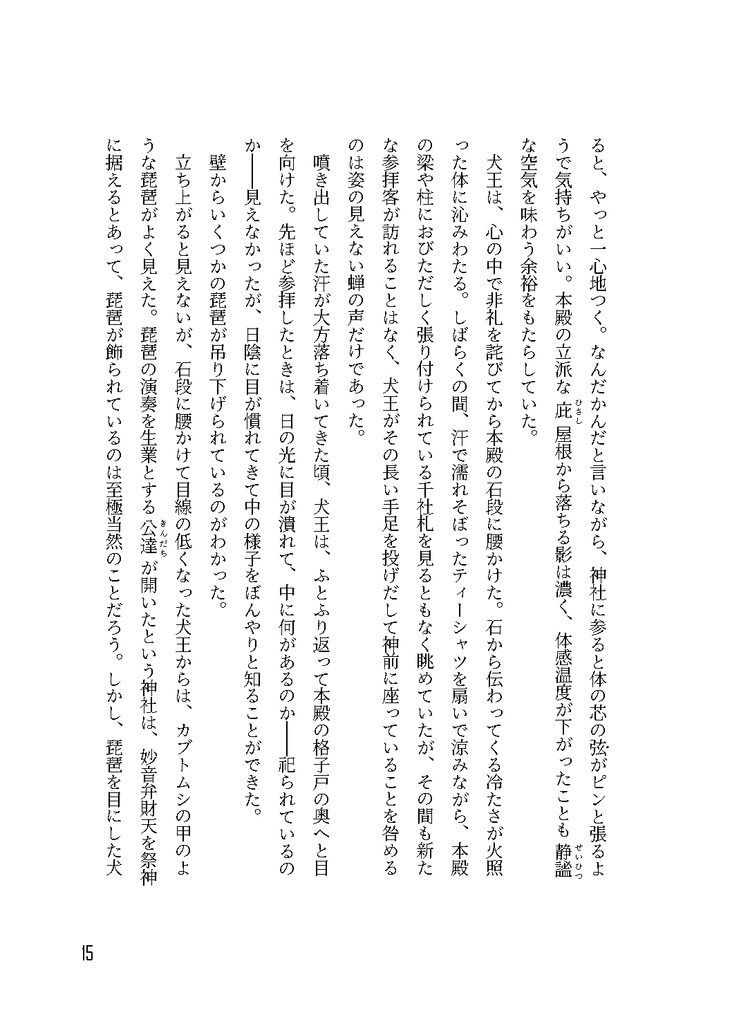 ると、やっと一心地つく。なんだかんだと言いながら、神社に参ると体の芯の弦がピンと張るよ
うで気持ちがいい。本殿の立派な庇屋根から落ちる影は濃く、体感温度が下がったことも静謐
ひさし
せいひつ
な空気を味わう余裕をもたらしていた。
犬王は、心の中で非礼を詫びてから本殿の石段に腰かけた。石から伝わってくる冷たさが火照
った体に沁みわたる。しばらくの間、汗で濡れそぼったティーシャツを扇いで涼みながら、本殿
の梁や柱におびただしく張り付けられている千社札を見るともなく眺めていたが、その間も新た
な参拝客が訪れることはなく、犬王がその長い手足を投げだして神前に座っていることを咎める
のは姿の見えない蝉の声だけであった。
噴き出していた汗が大方落ち着いてきた頃、犬王は、ふとふり返って本殿の格子戸の奥へと目
を向けた。先ほど参拝したときは、日の光に目が潰れて、中に何があるのか――祀られているの
か――見えなかったが、日陰に目が慣れてきて中の様子をぼんやりと知ることができた。
壁からいくつかの琵琶が吊り下げられているのがわかった。
立ち上がると見えないが、石段に腰かけて目線の低くなった犬王からは、カブトムシの甲のよ
うな琵琶がよく見えた。琵琶の演奏を生業とする公達が開いたという神社は、妙音弁財天を祭神
きんだち
に据えるとあって、琵琶が飾られているのは至極当然のことだろう。しかし、琵琶を目にした犬
15